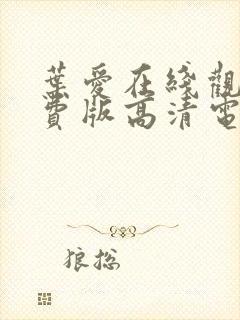 葉愛在綫觀
費版高清電
狼総